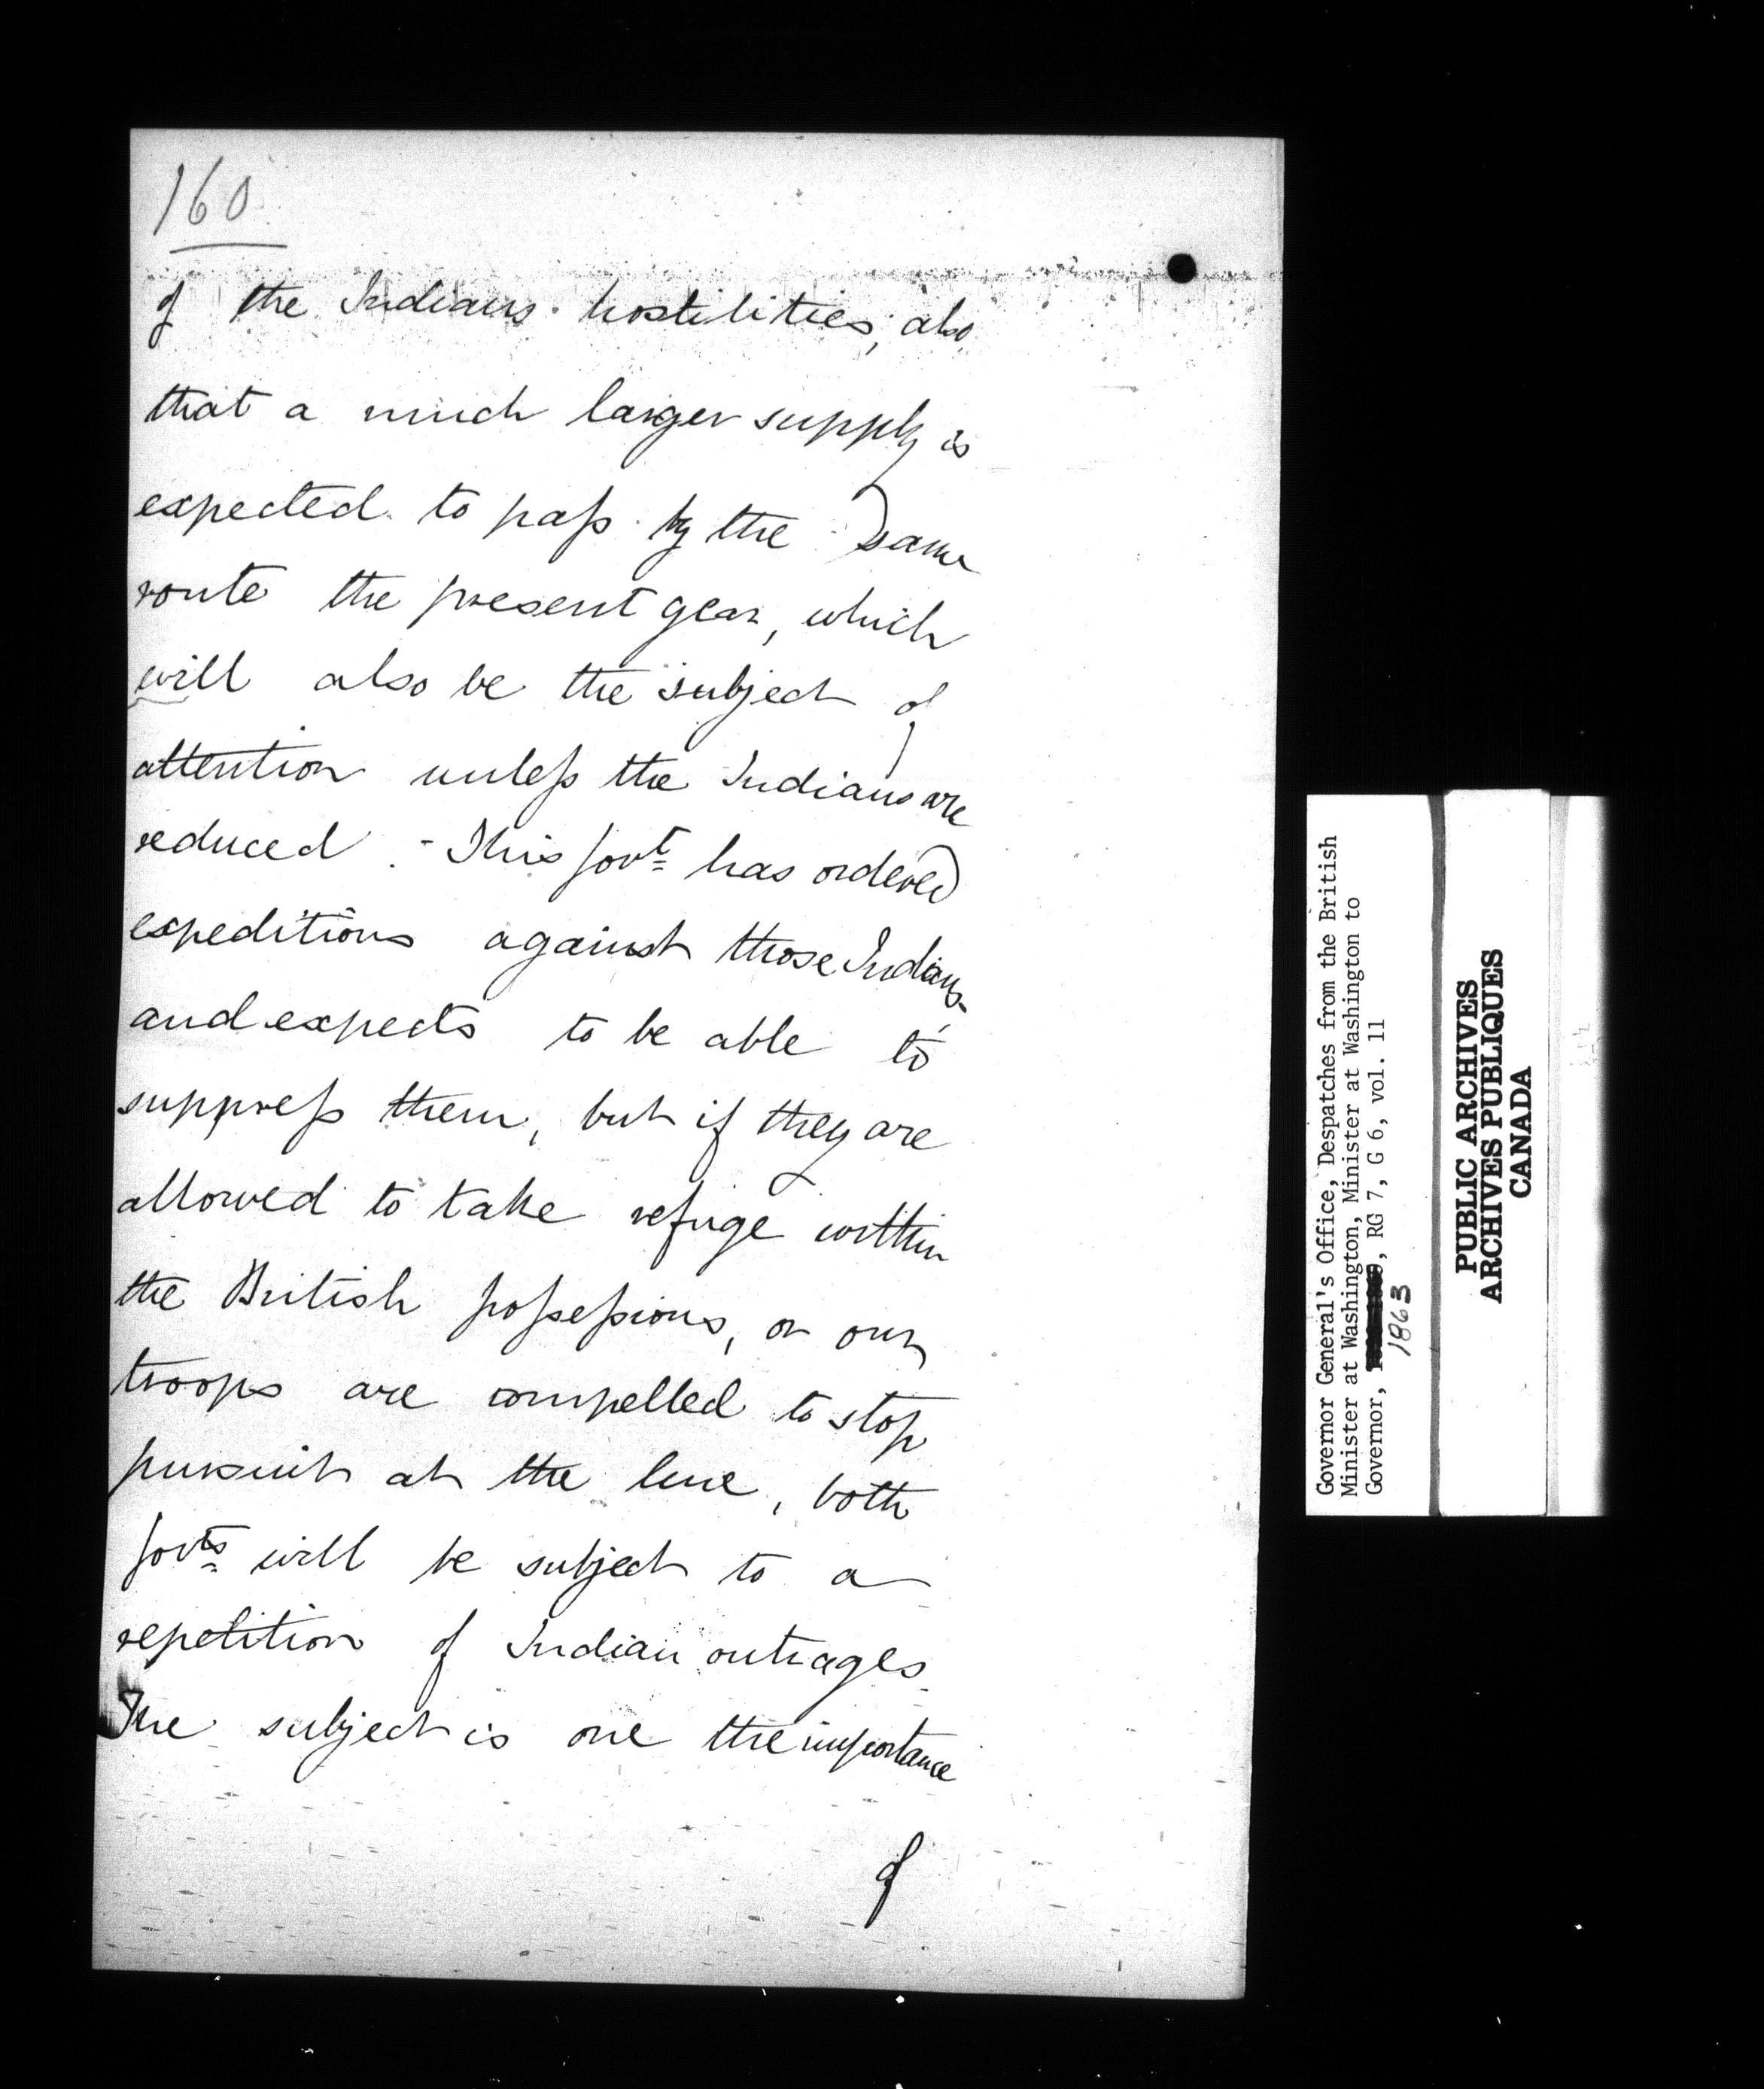 160
of the Indians hostilities, also
that a much larger supply is
expected to pass by the same
route the present year, which
will also be the subject of
attention unless the Indians are
reduced. - This Govt has ordered
expeditions against those Indians
and expects to be able to
suppress them, but if they are
allowed to take refuge within
the British possessions, or our
troops are compelled to stop
pursuit at the line, both
Govts will be subject to a
repetition of Indian outrages.
The subject is one the importance
of
Governor General's Office, Despatches from the British
Minister at Washington, Minister at Washington to
Governor, RG 7, G 6, vol. 11
1863
PUBLIC ARCHIVES
ARCHIVES PUBLIQUES
CANADA